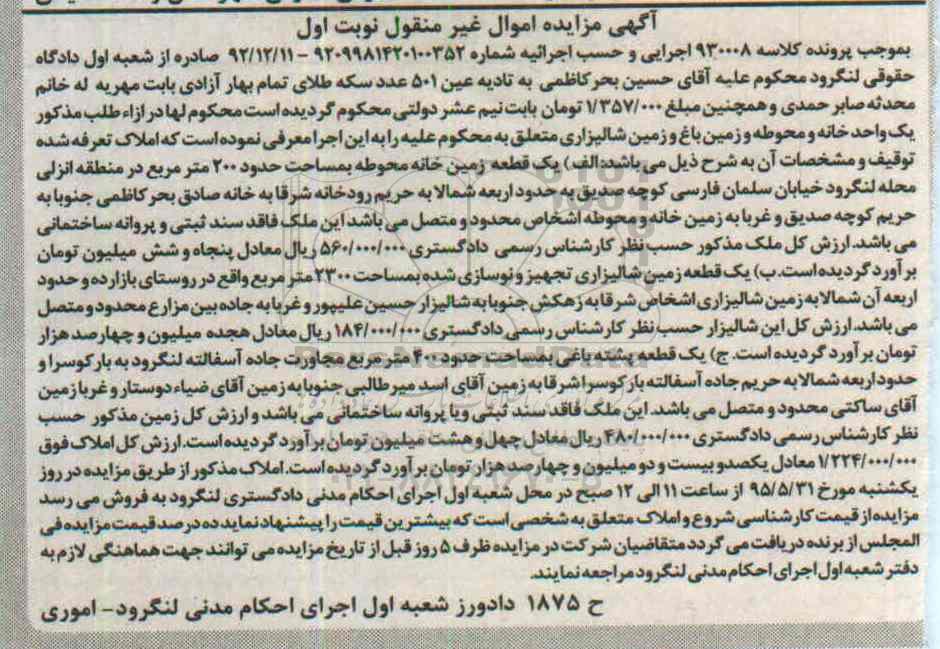 آگهی مزایده اموال غیر منقول نوبت اول
بموجب پرونده کلاسه ۹۳۰۰۰۸ اجرایی و حسب اجرائیه شماره ۹۲۰۹۹۸۱۴۲۰۱۰۰۳۵۲ - ۹۲/۱۲/۱۱ صادره از شعبه اول دادگاه
حقوقی لنگرود محکوم علیه آقای حسین بحرکاظمی به تادیه عین ۵۰۱ عدد سکه طلای تمام بهار آزادی بابت مهریه له خانم
محدثه صابر حمدی و همچنین مبلغ ۱/۳۵۷/۰۰۰ تومان بابت نیم عشر دولتی محکوم گردیده است محکوم لها در ازاء طلب مذکور
یک واحد خانه و محوطه و زمین باغ و زمین شالیزاری متعلق به محکوم علیه را به این اجرا معرفی نموده است که املاک تعرفه شده
توقیف و مشخصات آن به شرح ذیل می باشد: الف) یک قطعه زمین خانه محوطه بمساحت حدود ۲۰۰ متر مربع در منطقه انزلی
محله لنگرود خیابان سلمان فارسی کوچه صدیق به حدود اربعه شمالا به حریم رودخانه شرقا به خانه صادق بحر کاظمی جنوبا به
حریم کوچه صدیق و غربا به زمین خانه و محوطه اشخاص محدود و متصل می باشد این ملک فاقد سند ثبتی و پروانه ساختمانی
می باشد. ارزش کل ملک مذکور حسب نظر کارشناس رسمی دادگستری ۵۶۰/۰۰۰/۰۰۰ ریال معادل پنجاه و شش میلیون تومان
برآورد گردیده است. ب) یک قطعه زمین شالیزاری تجهیز و نوسازی شده بمساحت ۲۳۰۰ متر مربع واقع در روستای بازارده و حدود
اربعه آن شمالا به زمین شالیزاری اشخاص شرقا به زهکش جنوبا به شالیزار حسین علیپور و غربا به جاده بین مزارع محدود و متصل
می باشد. ارزش کل این شالیزار حسب نظر کارشناس رسمی دادگستری ۱۸۴/۰۰۰/۰۰۰ ریال معادل هجده میلیون و چهارصد هزار
تومان برآورد گردیده است. ج) یک قطعه پشته باغی بمساحت حدود ۴۰۰ متر مربع مجاورت جاده آسفالته لنگرود به بارکوسرا و
حدود اربعه شمالا به حریم جاده آسفالته بارکوسرا شرقا به زمین آقای اسد میرطالبی جنوبا به زمین آقای ضیاء دوستار و غربا زمین
آقای ساکتی محدود و متصل می باشد. این ملک فاقد سند ثبتی و یا پروانه ساختمانی می باشد و ارزش کل زمین مذکور حسب
نظر کارشناس رسمی دادگستری ۴۸۰/۰۰۰/۰۰۰ ریال معادل چهل و هشت میلیون تومان برآورد گردیده است. ارزش کل املاک فوق
۱/۲۲۴/۰۰۰/۰۰۰ معادل یکصدو بیست و دو میلیون و چهارصد هزار تومان برآورد گردیده است. املاک مذکور از طریق مزایده در روز
یکشنبه مورخ ۹۵/۵/۳۱ از ساعت ۱۱ الی ۱۲ صبح در محل شعبه اول اجرای احکام مدنی دادگستری لنگرود به فروش می رسد
مزایده از قیمت کارشناسی شروع و املاک متعلق به شخصی است که بیشترین قیمت را پیشنهاد نماید ده درصد قیمت مزایده فی
المجلس از برنده دریافت می گردد متقاضیان شرکت در مزایده ظرف ۵ روز قبل از تاریخ مزایده می توانند جهت هماهنگی لازم به
دفتر شعبه اول اجرای احکام مدنی لنگرود مراجعه نمایند.
ح ۱۸۷۵ دادورز شعبه اول اجرای احکام مدنی لنگرود- اموری